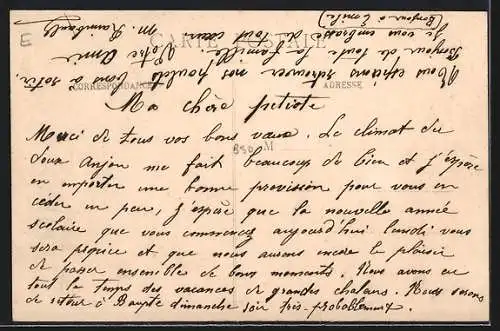 E
CARTE POSTALE
CORRESPONDANCE
ADRESSE
Ma chère petiote
Merci de tous vos bons vœux. Le climat du
doux Anjou me fait beaucoup de bien et j'espère
en emporter une bonne provision pour vous en
céder un peu, j'espère que la nouvelle année
scolaire que vous commencez aujourd'hui lundi vous
sera propice et que nous aurons encore le plaisir
de passer ensemble de bons moments. Nous avons eu
tout le temps des vacances de grandes chaleurs. Nous serons
de retour à dimanche soir très-probablement.
Nous espérons retrouver nos poulets bons à rôtir.
Bonjour de toute la famille. Votre amie
Je vous embrasse de tout cœur
M. Raimbault
(Bonjour à Émile)